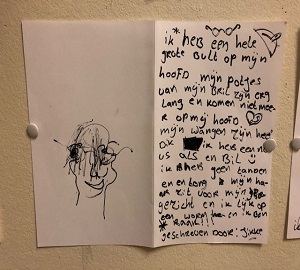 ik heb een hele
grote bult op mijn
hoofd mijn potjes
van mijn bril zijn erg
lang en komen niet mee
r op mij hoofd
mijn wangen zijn heel
dik ik heb een ne
us als en bil
ik heb geen tanden
en en tong mijn ha
ar zit voor mijn
gezicht en ik lijk op
een worm en ik ben
geschreven door: